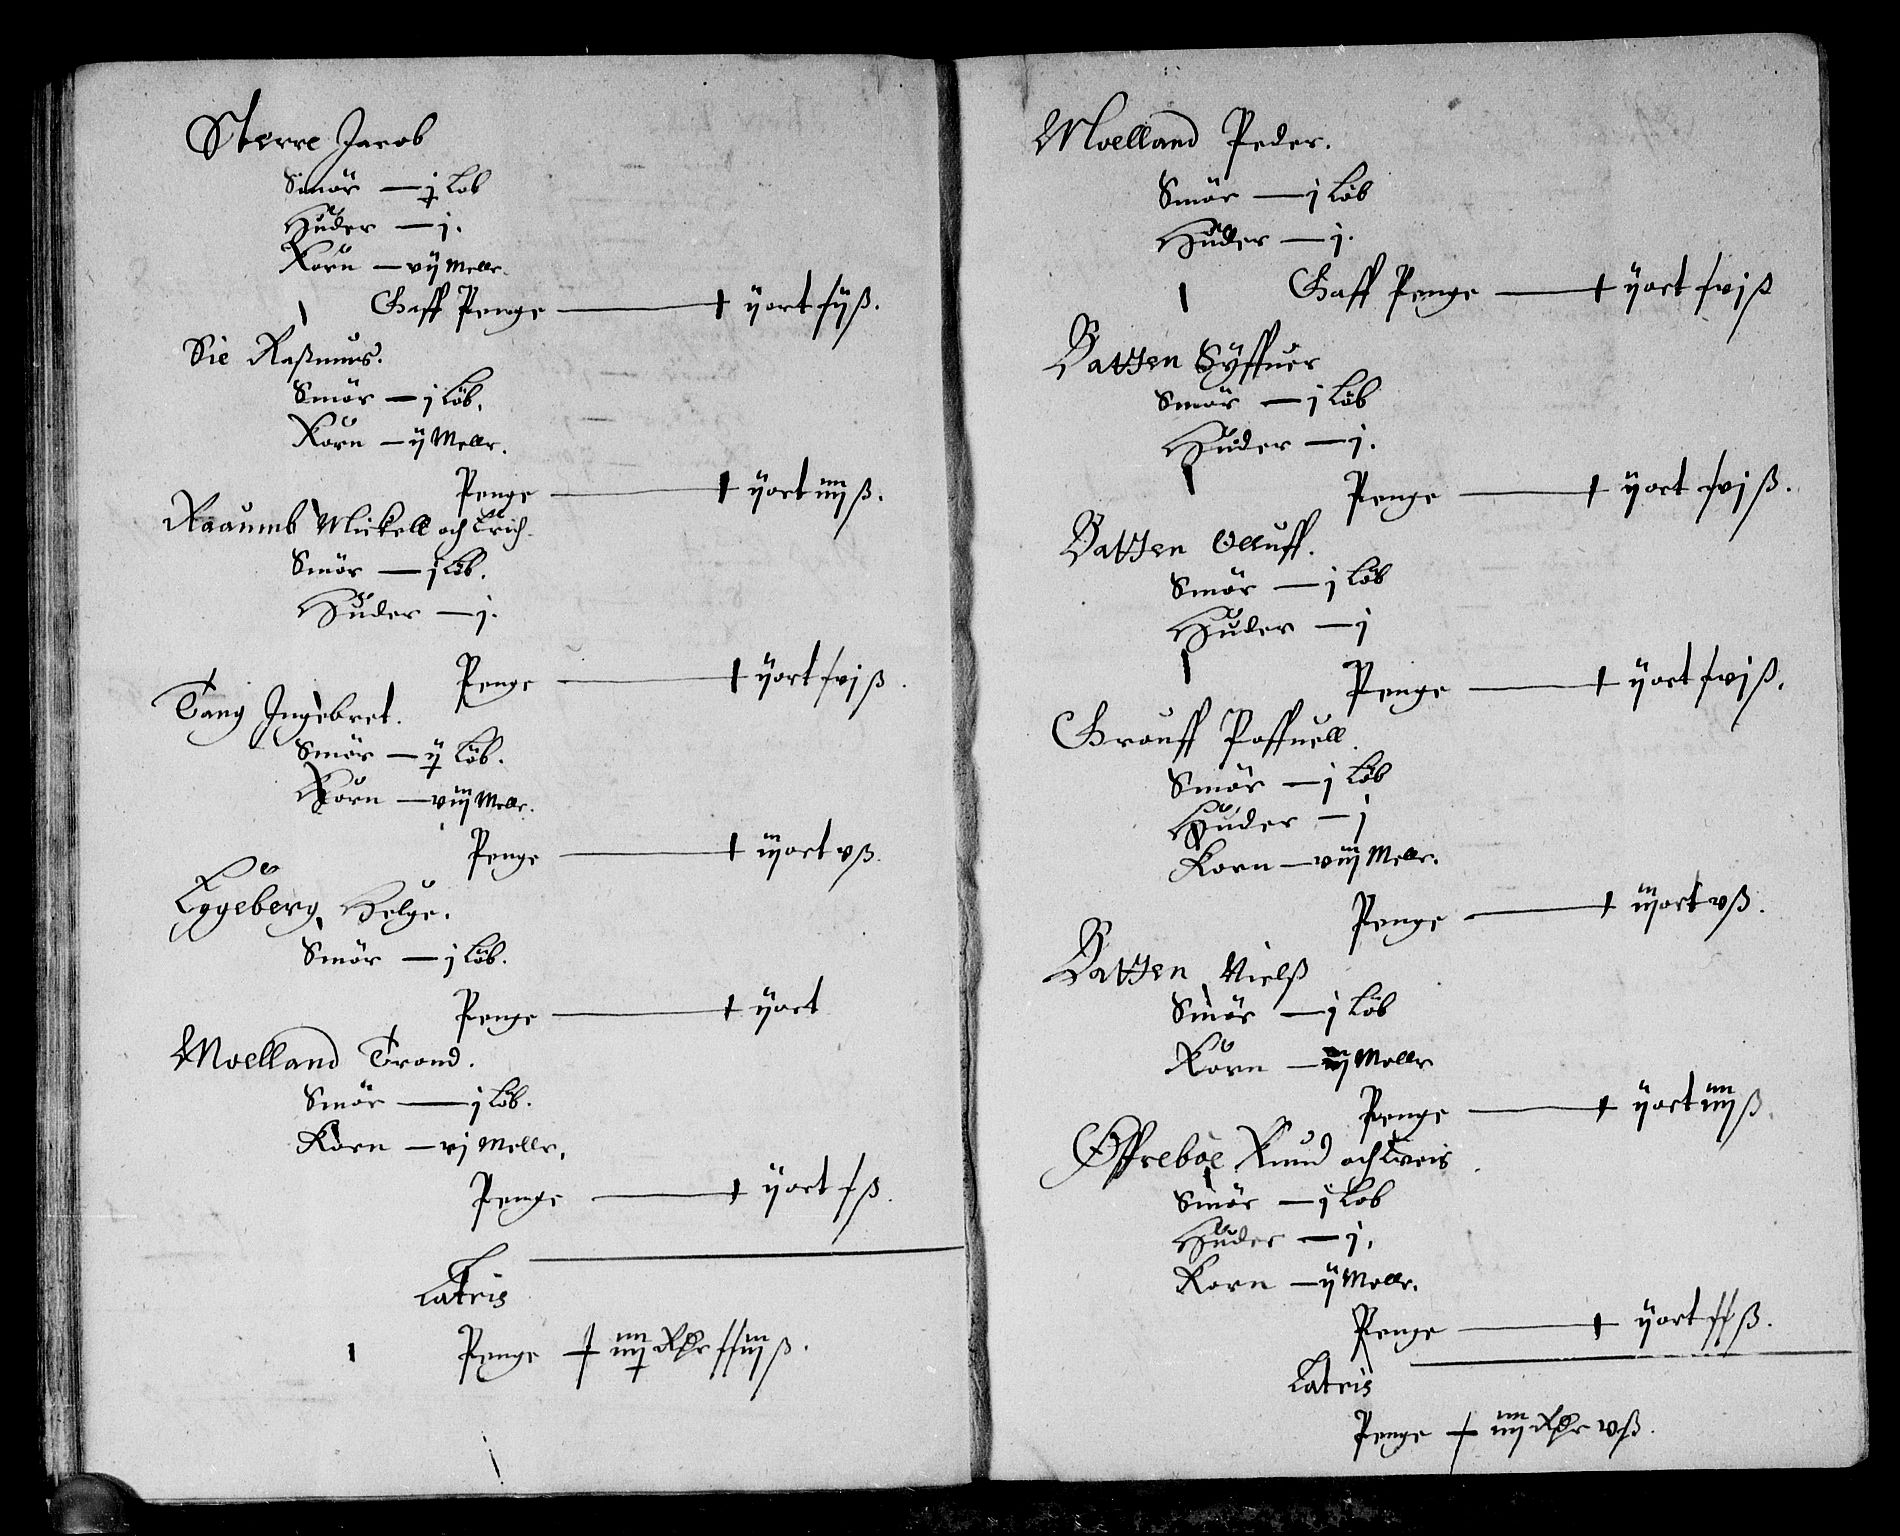 Sterre Jacob
Smör — j Löb
Huder — j.
Korn — vij Mellr.
Gaff Penge — ij ort fijß.
Sie Raßmus.
Smör — j Löb.
Korn — ij Mellr.
Penge — ij ort iiijß.
Raaumb Mickell och Erich.
Smör — j Löb.
Huder — j.
Penge — ij ort fvjß.
Tang Ingebret.
Smör — ij Löb.
Korn — viij Mellr.
Penge — iij ort vß.
Eggeberg Helge.
Smör — j Löb.
Penge — ij ort
Moelland Trond.
Smör — j Löb.
Korn — vj Mellr.
Penge — ij ort fß.
Latris
Penge iiij Rdr ffiijß.
Moelland Peder.
Smör — j Löb
Huder — j.
Gaff Penge — ij ort fvjß
Batten Syffuer
Smör — j Löb
Huder — j.
Penge — ij ort fvjß.
Batten Olluff.
Smör — j Löb
Huder — j
Penge — ij ort fvjß.
Grouff Poffuell.
Smör — j Löb
Huder — j
Korn — viij Mellr.
Penge — iij ort vß.
Batten Nielß
Smör — j Löb
Korn — iij Mellr
Penge — ij ort iiijß.
Øffreböe Knud och
Smör — j Löb
Huder — j.
Korn — ij Mellr.
Penge — ij ort ffß.
Latris
Penge iiij Rdr vß.